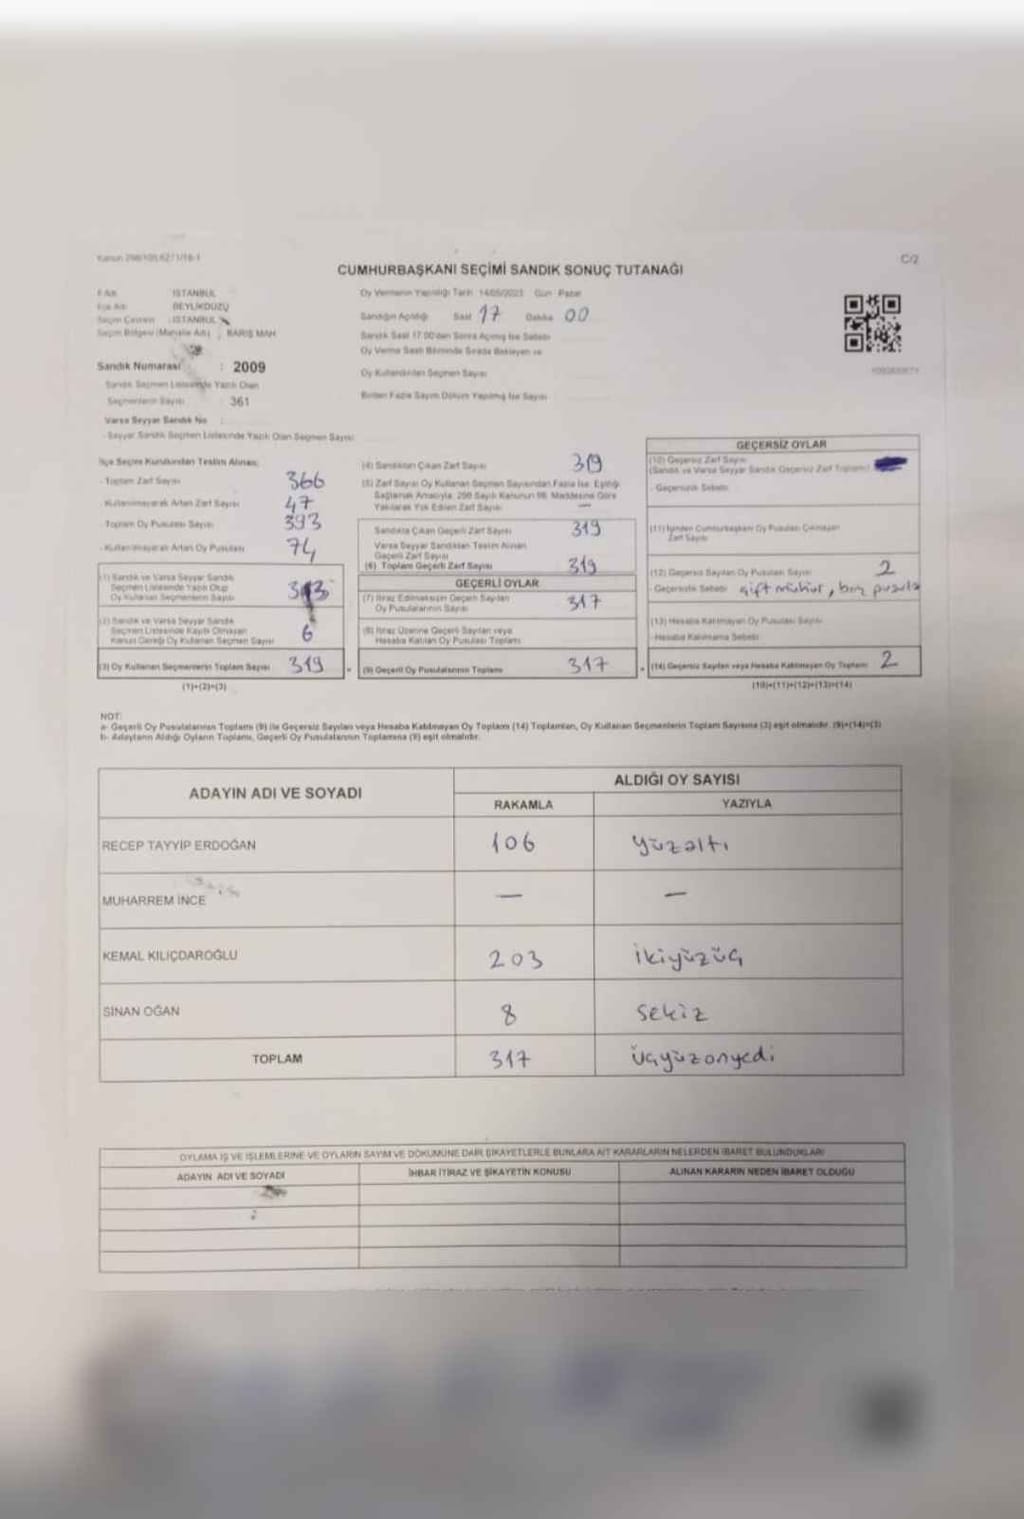 Kanun 298/105,6271/18-1
C/2
CUMHURBAŞKANI SEÇİMİ SANDIK SONUÇ TUTANAĞI
İl Adı : İSTANBUL
İlçe Adı : BEYLİKDÜZÜ
Seçim Çevresi : İSTANBUL
Seçim Bölgesi (Mahalle Adı) : BARIŞ MAH
Sandık Numarası : 2009
Sandık Seçmen Listesinde Yazılı Olan
Seçmenlerin Sayısı : 361
Varsa Seyyar Sandık No :
- Seyyar Sandık Seçmen Listesinde Yazılı Olan Seçmen Sayısı
Oy Vermenin Yapıldığı Tarih : 14/05/2023 Gün : Pazar
Sandığın Açıldığı Saat 17 Dakika 00
Sandık Saat 17.00'den Sonra Açılmış İse Sebebi
Oy Verme Saati Bitiminde Sırada Bekleyen ve
Oy Kullandırılan Seçmen Sayısı
Birden Fazla Sayım Döküm Yapılmış İse Sayısı
İlçe Seçim Kurulundan Teslim Alınan;
- Toplam Zarf Sayısı 366
- Kullanılmayarak Artan Zarf Sayısı 47
- Toplam Oy Pusulası Sayısı 393
- Kullanılmayarak Artan Oy Pusulası 74
(1) Sandık ve Varsa Seyyar Sandık
Seçmen Listesinde Yazılı Olup
Oy Kullanan Seçmenlerin Sayısı 313
(2) Sandık ve Varsa Seyyar Sandık
Seçmen Listesinde Kayıtlı Olmayan
Kanun Gereği Oy Kullanan Seçmen Sayısı 6
(3) Oy Kullanan Seçmenlerin Toplam Sayısı 319
(1)+(2)=(3)
(4) Sandıktan Çıkan Zarf Sayısı 319
(5) Zarf Sayısı Oy Kullanan Seçmen Sayısından Fazla İse; Eşitliği
Sağlamak Amacıyla, 298 Sayılı Kanunun 98. Maddesine Göre
Yakılarak Yok Edilen Zarf Sayısı —
Sandıkta Çıkan Geçerli Zarf Sayısı 319
Varsa Seyyar Sandıktan Teslim Alınan
Geçerli Zarf Sayısı
(6) Toplam Geçerli Zarf Sayısı 319
GEÇERLİ OYLAR
(7) İtiraz Edilmeksizin Geçerli Sayılan
Oy Pusulalarının Sayısı 317
(8) İtiraz Üzerine Geçerli Sayılan veya
Hesaba Katılan Oy Pusulası Toplamı
(9) Geçerli Oy Pusulalarının Toplamı 317
GEÇERSİZ OYLAR
(10) Geçersiz Zarf Sayısı
(Sandık ve Varsa Seyyar Sandık Geçersiz Zarf Toplamı)
- Geçersizlik Sebebi:
(11) İçinden Cumhurbaşkanı Oy Pusulası Çıkmayan
Zarf Sayısı
(12) Geçersiz Sayılan Oy Pusulası Sayısı 2
- Geçersizlik Sebebi: çift mühür, boş pusula
(13) Hesaba Katılmayan Oy Pusulası Sayısı
- Hesaba Katılmama Sebebi
(14) Geçersiz Sayılan veya Hesaba Katılmayan Oy Toplamı 2
(10)+(11)+(12)+(13)=(14)
NOT:
a- Geçerli Oy Pusulalarının Toplamı (9) ile Geçersiz Sayılan veya Hesaba Katılmayan Oy Toplamı (14) Toplamları, Oy Kullanan Seçmenlerin Toplam Sayısına (3) eşit olmalıdır. (9)+(14)=(3)
b- Adayların Aldığı Oyların Toplamı, Geçerli Oy Pusulalarının Toplamına (9) eşit olmalıdır.
ADAYIN ADI VE SOYADI
ALDIĞI OY SAYISI
RAKAMLA YAZIYLA
RECEP TAYYİP ERDOĞAN 106 yüzaltı
MUHARREM İNCE — —
KEMAL KILIÇDAROĞLU 203 ikiyüzüç
SİNAN OĞAN 8 sekiz
TOPLAM 317 üçyüzonyedi
OYLAMA İŞ VE İŞLEMLERİNE VE OYLARIN SAYIM VE DÖKÜMÜNE DAİR ŞİKAYETLERLE BUNLARA AİT KARARLARIN NELERDEN İBARET BULUNDUKLARI
ADAYIN ADI VE SOYADI İHBAR İTİRAZ VE ŞİKAYETİN KONUSU ALINAN KARARIN NEDEN İBARET OLDUĞU